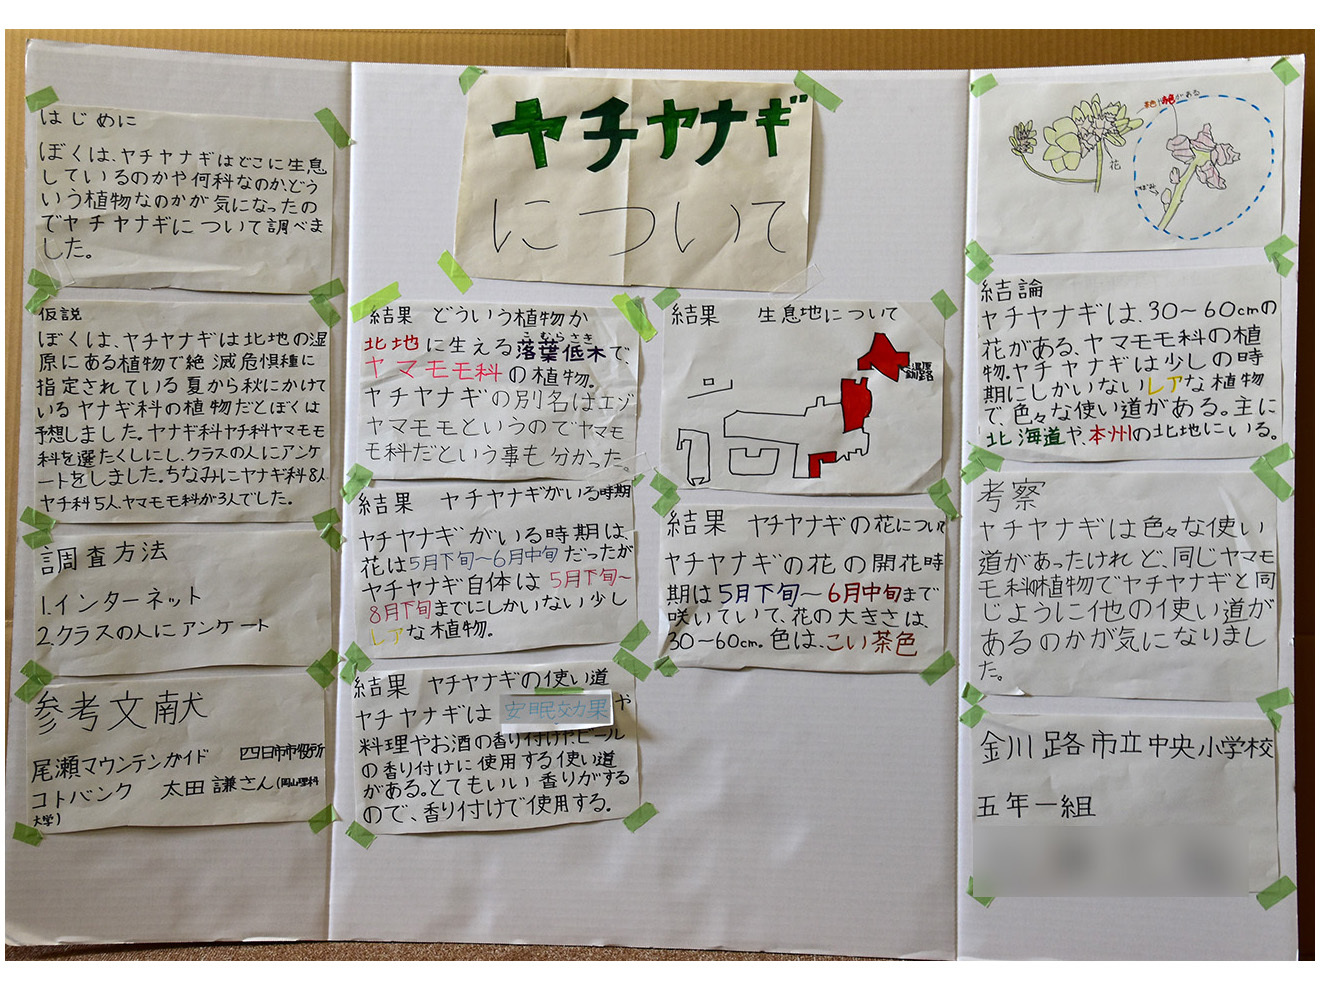 ヤチヤナギ
について
はじめに
ぼくは、ヤチヤナギはどこに生息
しているのかや何科なのか、どう
いう植物なのかが気になったの
でヤチヤナギについて調べま
した。
仮説
ぼくは、ヤチヤナギは北地の湿
原にある植物で絶滅危惧種に
指定されている夏から秋にかけて
いるヤナギ科の植物だとぼくは
予想しました。ヤナギ科ヤチ科ヤマモモ
科を選たくしにし、クラスの人にアンケ
ートをしました。ちなみにヤナギ科8人
ヤチ科5人ヤマモモ科が3人でした。
調査方法
1.インターネット
2.クラスの人にアンケート
参考文献
尾瀬マウンテンガイド 四日市市役所
コトバンク 太田謙さん(岡山理科
大学)
結果 どういう植物か
こむらさき
北地に生える落葉低木で、
ヤマモモ科の植物。
ヤチヤナギの別名はエゾ
ヤマモモというのでヤマモ
モ科だという事も分かった。
結果 ヤチヤナギがいる時期
ヤチヤナギがいる時期は、
花は5月下旬～6月中旬だったが
ヤチヤナギ自体は5月下旬～
8月下旬までにしかいない少し
レアな植物。
結果 ヤチヤナギの使い道
ヤチヤナギは安眠効果や
料理やお酒の香り付けやビール
の香り付けに使用する使い道
がある。とてもいい香りがする
ので、香り付けで使用する。
結果 生息地について
結果 ヤチヤナギの花について
ヤチヤナギの花の開花時
期は5月下旬～6月中旬まで
咲いていて、花の大きさは、
30～60cm。色は、こい茶色
花
結論
ヤチヤナギは、30～60cmの
花がある、ヤマモモ科の植
物。ヤチヤナギは少しの時
期にしかいないレアな植物
で、色々な使い道がある。主に
北海道や、本州の北地にいる。
考察
ヤチヤナギは色々な使い
道があったけれど、同じヤマモ
モ科の植物でヤチヤナギと同
じように他の使い道が
あるのかが気になりまし
た。
金川路市立中央小学校
五年一組